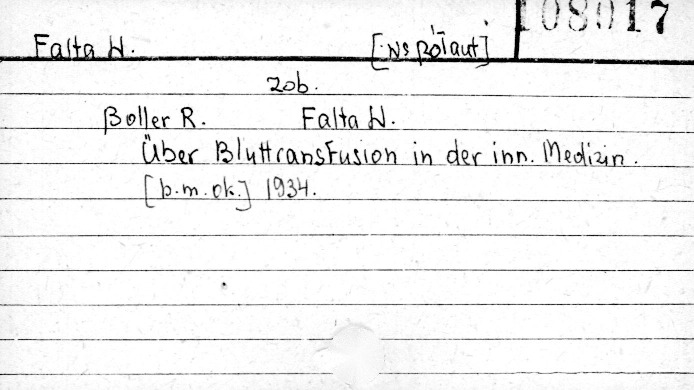 108017
Falta W. [współaut]
zob.
Boller R. Falta W.
Über Bluttransfusion in der inn. Medizin.
[b.m.ok.] 1934.